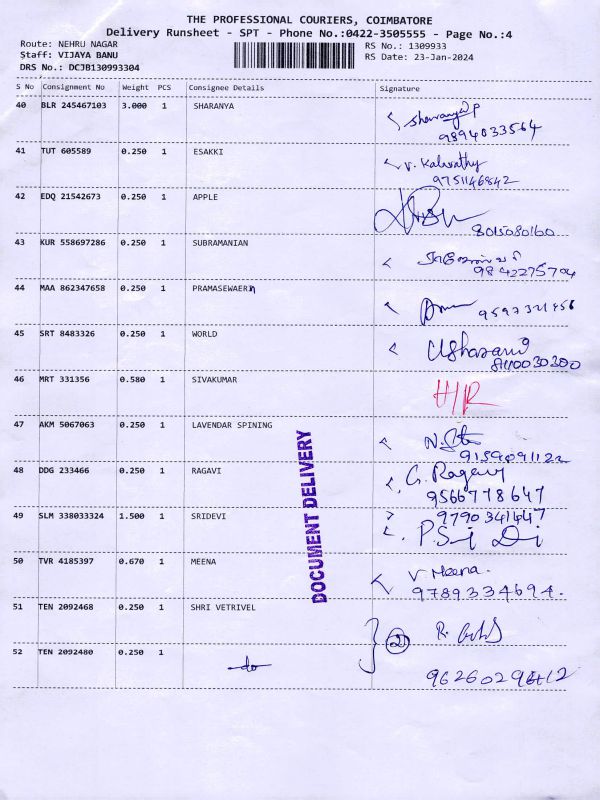 THE PROFESSIONAL COURIERS, COIMBATORE
Delivery Runsheet - SPT - Phone No.:0422-3505555 - Page No.:4
Route: NEHRU NAGAR
RS No.: 1309933
Staff: VIJAYA BANU
RS Date: 23-Jan-2024
DRS No.: DCJB130993304
S No Consignment No Weight PCS Consignee Details Signature
40 BLR 245467103 3.000 1 SHARANYA
9894033564
41 TUT 605589 0.250 1 ESAKKI V. Kalvathy
9751146842
42 EDQ 21542673 0.250 1 APPLE
8015080160
43 KUR 558697286 0.250 1 SUBRAMANIAN
9842275704
44 MAA 862347658 0.250 1 PRAMASEWAERN
9597321456
45 SRT 8483326 0.250 1 WORLD
46 MRT 331356 0.580 1 SIVAKUMAR H/R
47 AKM 5067063 0.250 1 LAVENDAR SPINING
9159091122
48 DDG 233466 0.250 1 RAGAVI G. Ragavi
9566778647
49 SLM 338033324 1.500 1 SRIDEVI 9790341447
P. Sri Di
50 TVR 4185397 0.670 1 MEENA V Meena.
9789334694.
51 TEN 2092468 0.250 1 SHRI VETRIVEL
2
52 TEN 2092480 0.250 1 do
DOCUMENT DELIVERY